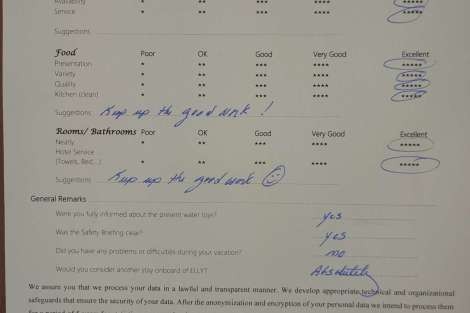 Availability * ** *** **** *****
Service * ** *** **** *****
Suggestions
Food Poor OK Good Very Good Excellent
Presentation * ** *** **** *****
Variety * ** *** **** *****
Quality * ** *** **** *****
Kitchen (clean) * ** *** **** *****
Suggestions Keep up the good work !
Rooms/ Bathrooms Poor OK Good Very Good Excellent
Neatly * ** *** **** *****
Hotel Service
(Towels, Bed...) * ** *** **** *****
Suggestions Keep up the good work ☺
General Remarks
Were you fully informed about the present water toys? yes
Was the Safety Briefing clear? yes
Did you have any problems or difficulties during your vacation? no
Would you consider another stay onboard of ELLY? Absolutely
We assure you that we process your data in a lawful and transparent manner. We develop appropriate technical and organizational
safeguards that ensure the security of your data. After the anonymization and encryption of your personal data we intend to process them